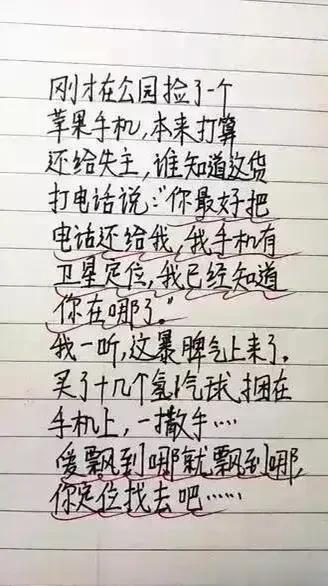 刚才在公园捡了一个
苹果手机,本来打算
还给失主,谁知道这货
打电话说:"你最好把
电话还给我,我手机有
卫星定位,我已经知道
你在哪了。"
我一听,这暴脾气上来了。
买了十几个氢气球捆在
手机上,一撒手……
爱飘到哪就飘到哪,
你定位找去吧……